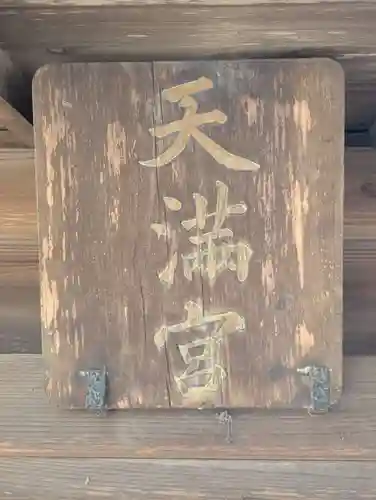 天満宮